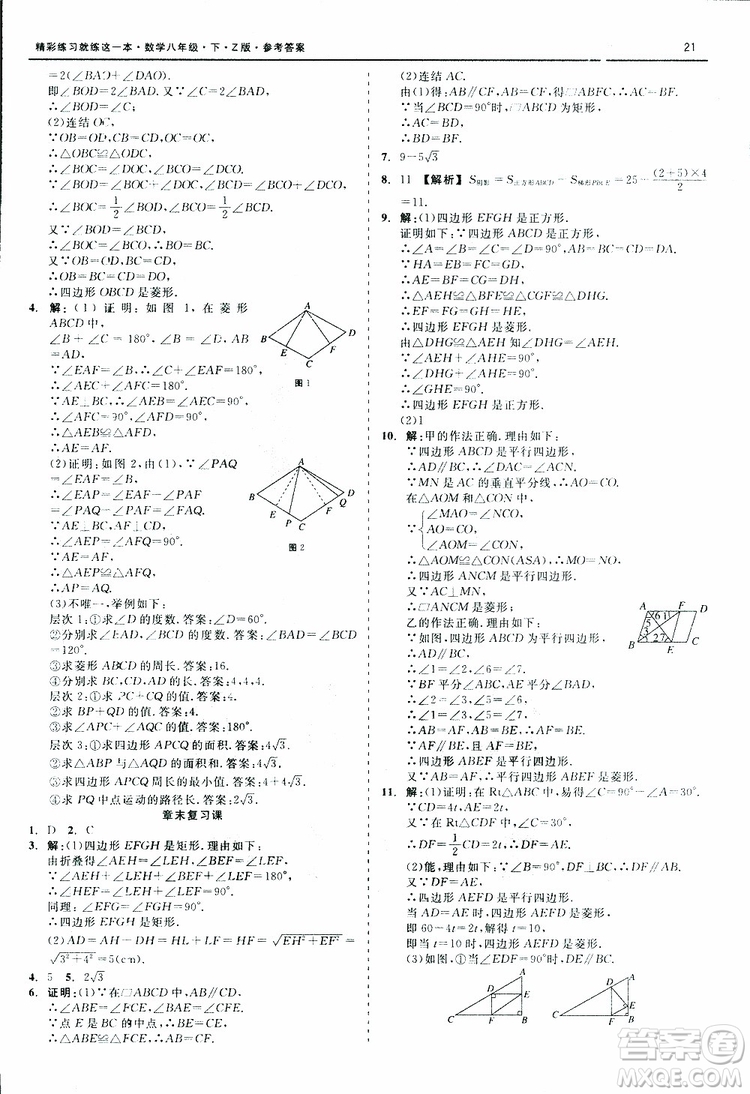 精彩练习就练这一本·数学八年级·下·Z版·参考答案
21
=2(∠BAO+∠DAO).
即∠BOD=2∠BAD. 又∵∠C=2∠BAD,
∴∠BOD=∠C;
(2)连结OC.
∵OB=OD,CB=CD,OC=OC,
∴△OBC≌△ODC,
∴∠BOC=∠DOC,∠BCO=∠DCO.
∵∠BOD=∠BOC+∠DOC,
∠BCD=∠BCO+∠DCO,
∴∠BOC=1/2∠BOD,∠BCO=1/2∠BCD.
又∵∠BOD=∠BCD,
∴∠BOC=∠BCO,∴BO=BC.
又∵OB=OD,BC=CD,
∴OB=BC=CD=DO,
∴四边形OBCD是菱形.
4. 解:(1)证明:如图1,在菱形
ABCD中,
∠B+∠C=180°,∠B=∠D,AB
=AD,
∵∠EAF=∠B,∴∠C+∠EAF=180°,
∴∠AEC+∠AFC=180°.
∵AE⊥BC,∴∠AEB=∠AEC=90°,
∴∠AFC=90°,∠AFD=90°,
∴△AEB≌△AFD,
∴AE=AF.
A
B
D
E
F
C
图1
(2)证明:如图2,由(1),∵∠PAQ
=∠EAF=∠B,
∴∠EAP=∠EAF-∠PAF
=∠PAQ-∠PAF=∠FAQ.
∵AE⊥BC,AF⊥CD,
∴∠AEP=∠AFQ=90°.
∵AE=AF,
∴△AEP≌△AFQ,
∴AP=AQ.
A
B
D
E
P
C
F
Q
图2
(3)不唯一,举例如下:
层次1:①求∠D的度数.答案:∠D=60°.
②分别求∠BAD,∠BCD的度数.答案:∠BAD=∠BCD
=120°.
③求菱形ABCD的周长.答案:16.
④分别求BC,CD,AD的长.答案:4,4,4.
层次2:①求PC+CQ的值.答案:4.
②求BP+QD的值.答案:4.
③求∠APC+∠AQC的值.答案:180°.
层次3:①求四边形APCQ的面积.答案:4√3.
②求△ABP与△AQD的面积和.答案:4√3.
③求四边形APCQ周长的最小值.答案:4+4√3.
④求PQ中点运动的路径长.答案:2√3.
章末复习课
1. D 2. C
3. 解:(1)四边形EFGH是矩形.理由如下:
由折叠得∠AEH=∠LEH,∠BEF=∠LEF.
∵∠AEH+∠LEH+∠BEF+∠LEF=180°,
∴∠LEH+∠LEF=90°.
同理:∠EFG=∠EHG=90°.
∴四边形EFGH是矩形.
(2)AD=AH+DH=HL+FL=HF=√(EH²+EF²)=
√(3²+4²)=5(cm)
4. 5 5. 2√3
6. 证明:(1)∵在□ABCD中,AB∥CF.
∴∠ABE=∠FCE,
∵点E是BC的中点,∴BE=CE.
又∵∠AEB=∠FEC,∴△ABE≌△FCE,
∴AB=FC.
(2)连结AC.
由(1)得:AB∥CF,AB=CF,∴□ABFC是平行四边形.
∵当∠BCD=90°时,□ABCD为矩形,
∴AC=BD.
∴AC=BF,
∴BD=BF.
7. 9-5√3
8. 11 【解析】S阴影=S正方形ABCD-S梯形=25-(2+5)×4/2
=11.
9. 解:(1)四边形EFGH是正方形.
证明如下:∵四边形ABCD是正方形,
∴∠A=∠B=∠C=∠D=90°,AB=BC=CD=DA.
∵HA=EB=FC=GD,
∴AE=BF=CG=DH,
∴△AEH≌△BFE≌△CGF≌△DHG,
∴EF=FG=GH=HE,
∴四边形EFGH是菱形.
由△DHG≌△AEH知∠DHG=∠AEH,
∵∠AEH+∠AHE=90°,
∴∠DHG+∠AHE=90°,
∴∠GHE=90°,
∴四边形EFGH是正方形.
(2)1
10. 解:甲的作法正确.理由如下:
∵四边形ABCD是平行四边形,
∴AD∥BC,∴∠DAC=∠ACN.
∵MN是AC的垂直平分线,∴AO=CO,
在△AOM和△CON中,
∵{∠MAO=∠NCO,
AO=CO,
∠AOM=∠CON,
∴△AOM≌△CON(ASA),∴MO=NO,
∴四边形ANCM是平行四边形.
又∵AC⊥MN,
∴□ANCM是菱形.
乙的作法正确.理由如下:
∵如图,四边形ABCD是平行四边形,
∴AD∥BC,
∴∠1=∠2,∠6=∠7.
∵BF平分∠ABC,AE平分∠BAD,
∴∠2=∠3,∠5=∠6,
∴∠1=∠3,∠5=∠7,
∴AB=AF,AB=BE,∴AF=BE.
∵AF∥BE,
∴四边形ABEF是平行四边形.
又∵AB=AF,∴平行四边形ABEF是菱形.
A
F
D
B
E
C
11. 解:(1)证明:∵在Rt△ABC中,易得∠C=30°.
∵CD=4t,AE=2t,
又∵在Rt△CDF中,∠C=30°,
∴DF=1/2CD=2t,∴DF=AE.
(2)能,理由如下:∵∠B=90°,DF⊥BC,∴DF∥AB,
又∵DF=AE,
∴四边形AEFD是平行四边形,
当AD=AE时,四边形AEFD是菱形,
即60-4t=2t,解得t=10,
即当t=10时,四边形AEFD是菱形.
(3)如图,①当∠EDF=90°时,∵DE∥BC,
A
D
E
C
F
B
A
D
E
C
F
B
答案圈